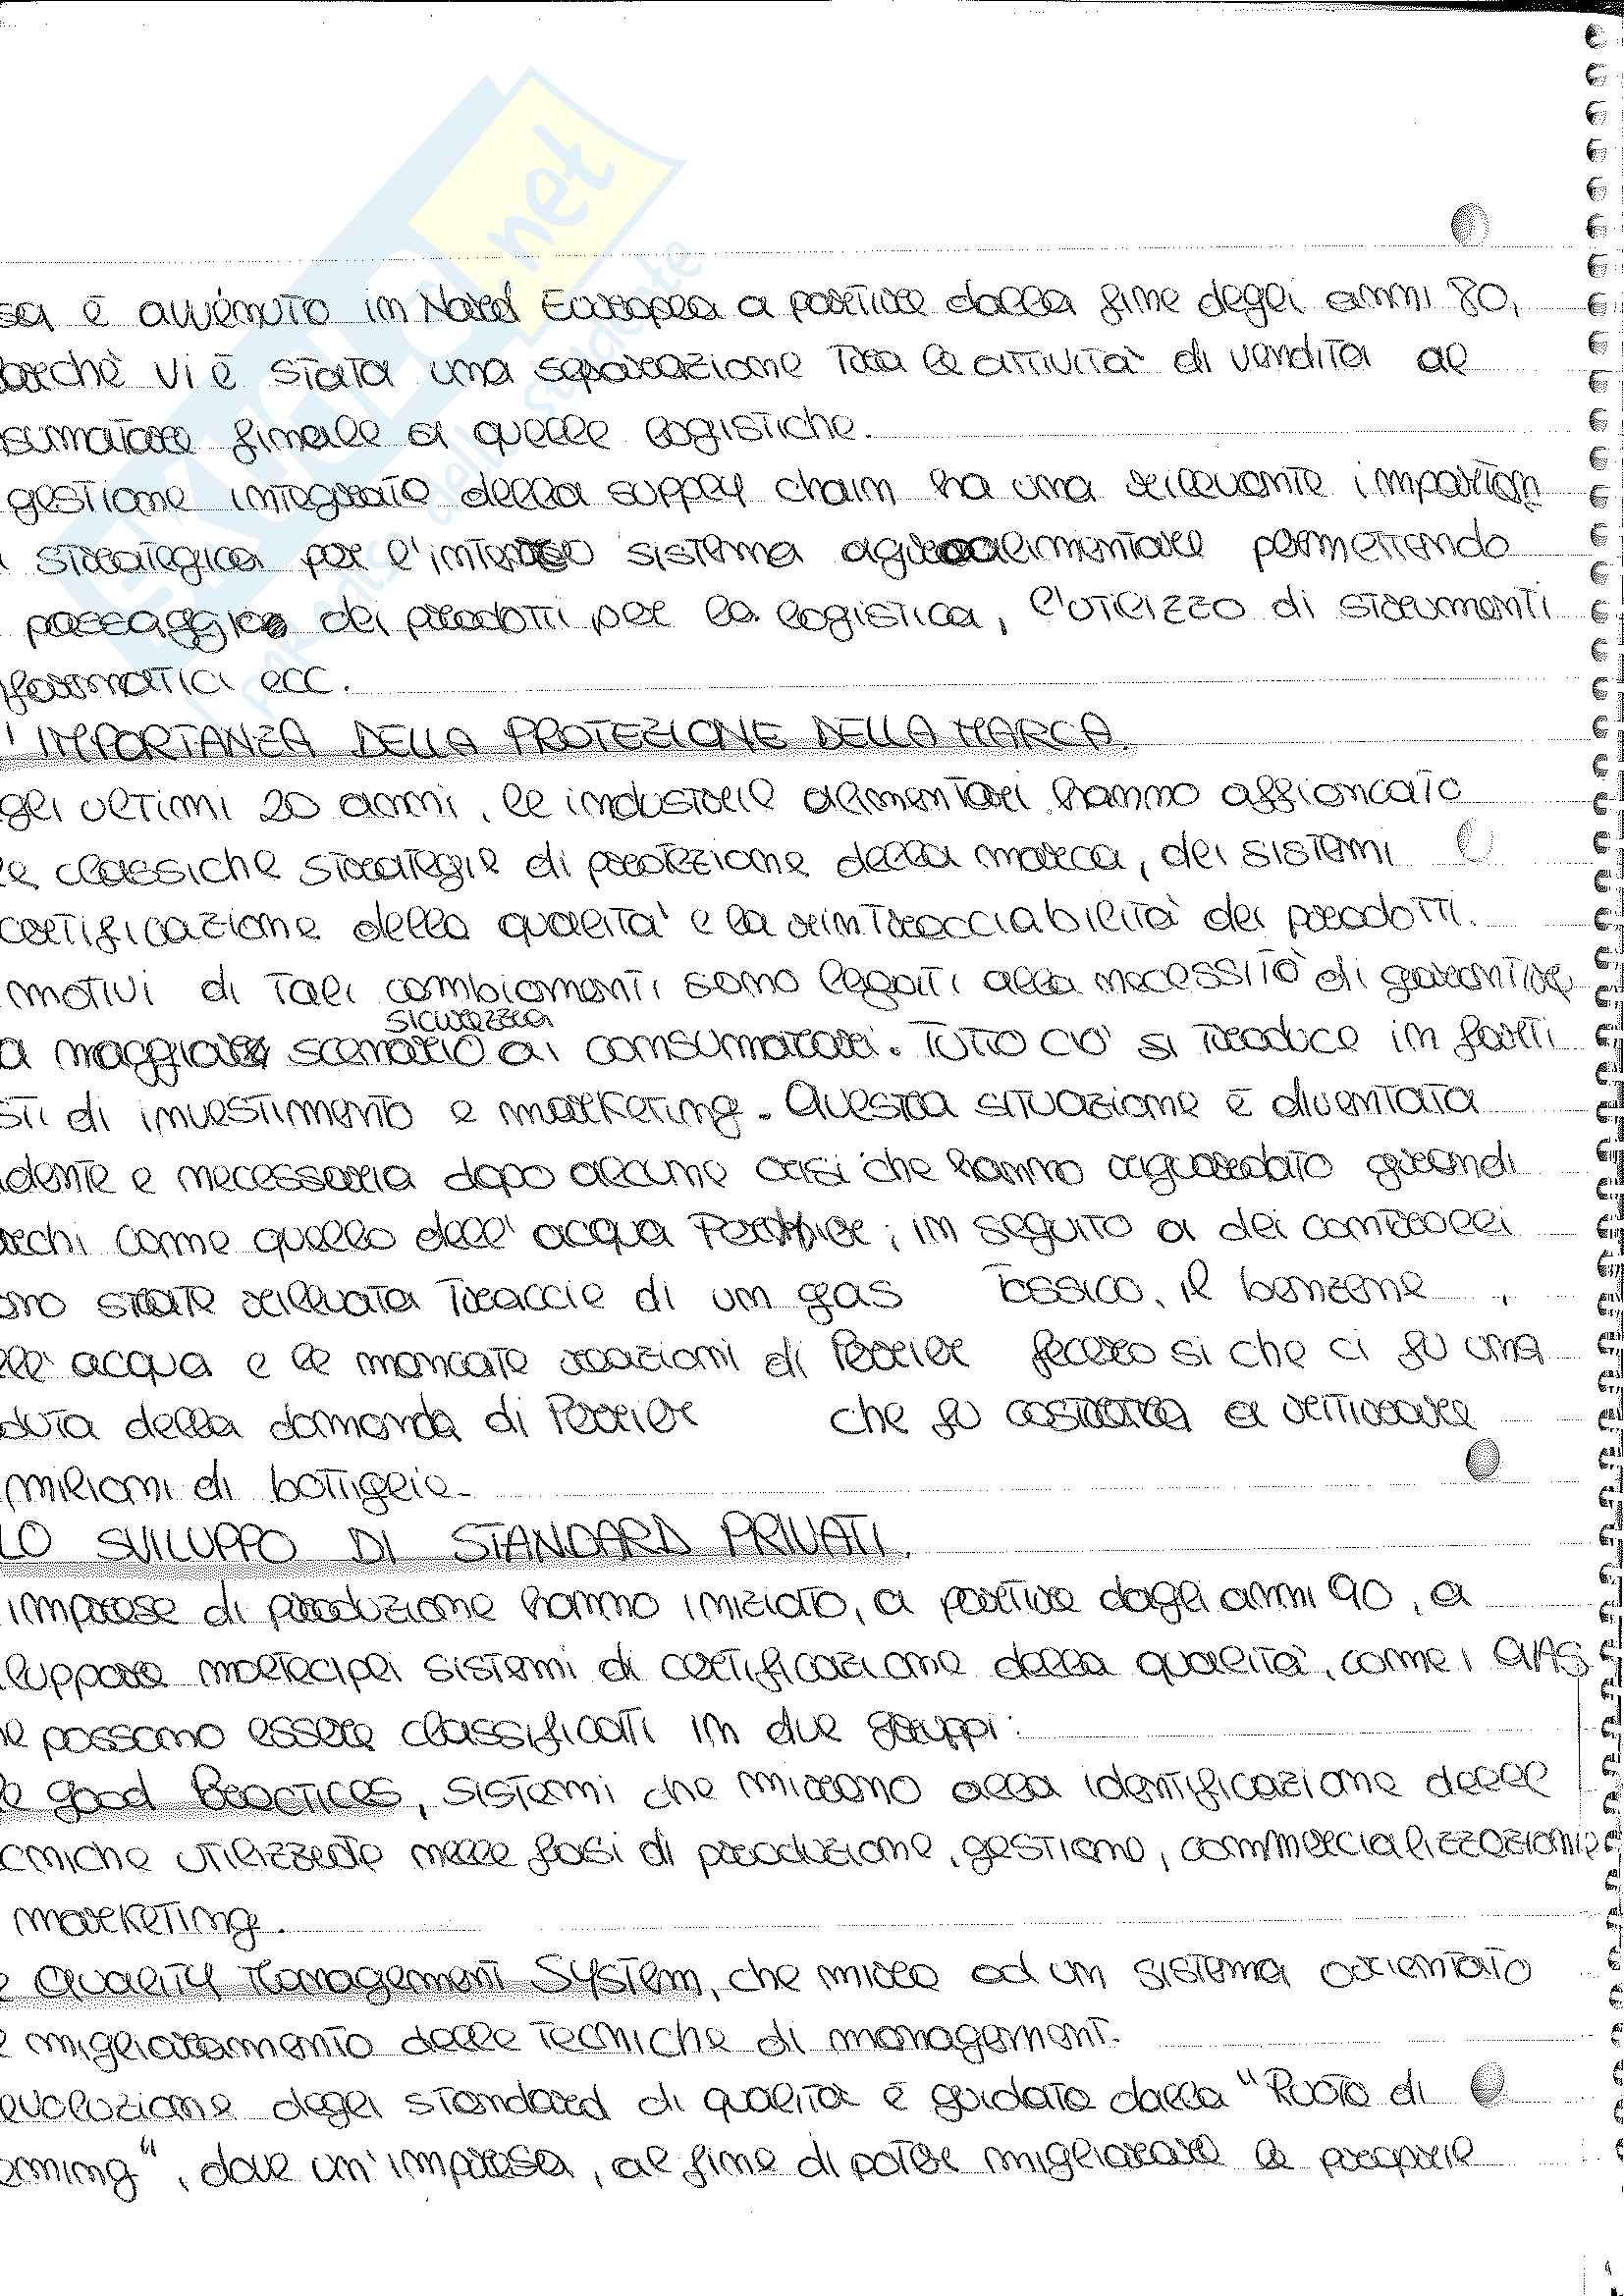 sa è avvenuto in Nord Europea a partire dalla fine degli anni 80,
perchè vi è stata una separazione tra le attività di vendita al
sumatore finale a quelle logistiche.
gestione integrato della supply chain ha una rilevante importan
strategica per l'intero sistema agroalimentare permettendo
passaggio dei prodotti per la logistica, l'utilizzo di strumenti
formatici ecc.
L'IMPORTANZA DELLA PROTEZIONE DELLA MARCA.
gli ultimi 20 anni, le industrie alimentari hanno affiancato
le classiche strategie di protezione della marca, dei sistemi
certificazione della qualità e la rintracciabilità dei prodotti.
motivi di tali cambiamenti sono legati alla necessità di garantire
sicurezza
a maggiore scenario ai consumatori. Tutto ciò si traduce in forti
sti di investimento e marketing. Questa situazione è diventata
dente e necessaria dopo alcune casi che hanno riguardato grandi
rchi come quello dell'acqua Perrier; in seguito a dei controlli
ono state rilevata traccie di un gas tossico, il benzene,
ell'acqua e le mancate reazioni di Perrier fecero si che ci fu una
duta della domanda di Perrier che fu costretta a ritirare
milioni di bottiglie.
LO SVILUPPO DI STANDARD PRIVATI.
imprese di produzione hanno iniziato, a partire dagli anni 90, a
luppare molteciplei sistemi di certificazione della qualità, come i QAS
he possono essere classificati in due gruppi:
le good Practices, sistemi che mirano alla identificazione delle
cniche utilizzate nelle fasi di produzione, gestione, commercializzazione
marketing.
e Quality Management System, che mirao ad un sistema orientato
e miglioramento delle tecniche di management.
evoluzione degli standard di qualità è guidato dalla "Ruota di
eming", dove un'impresa, al fine di poter migliorare le proprie